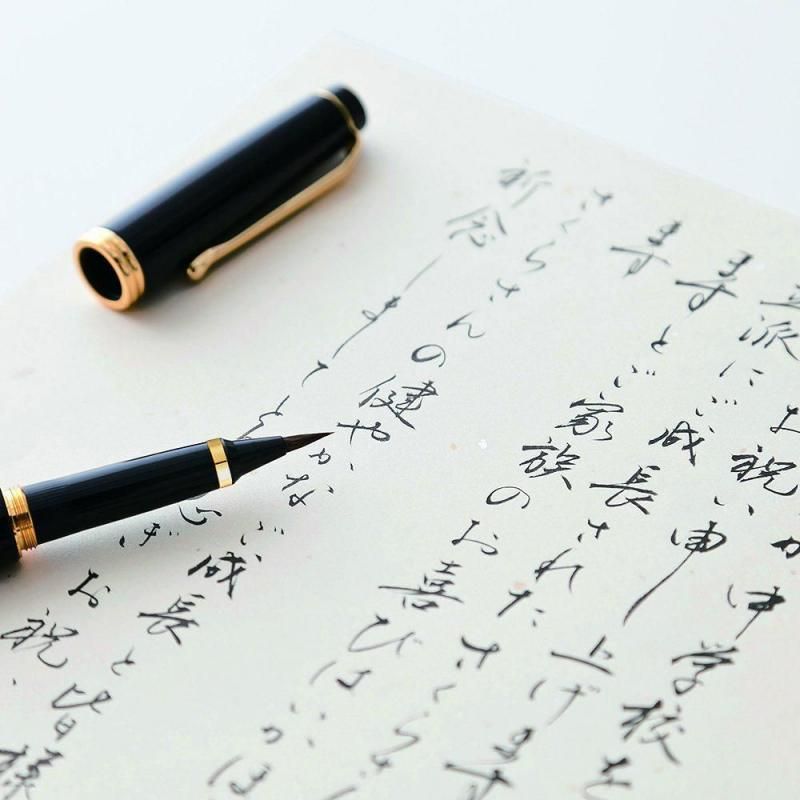 か中学校を
お祝い申し上げます
立派にご成長されたさくらさ
ますとご家族のお喜びはいかほ
ます
さくらさんの健やかなご成長と皆様
祈念しまして
お祝